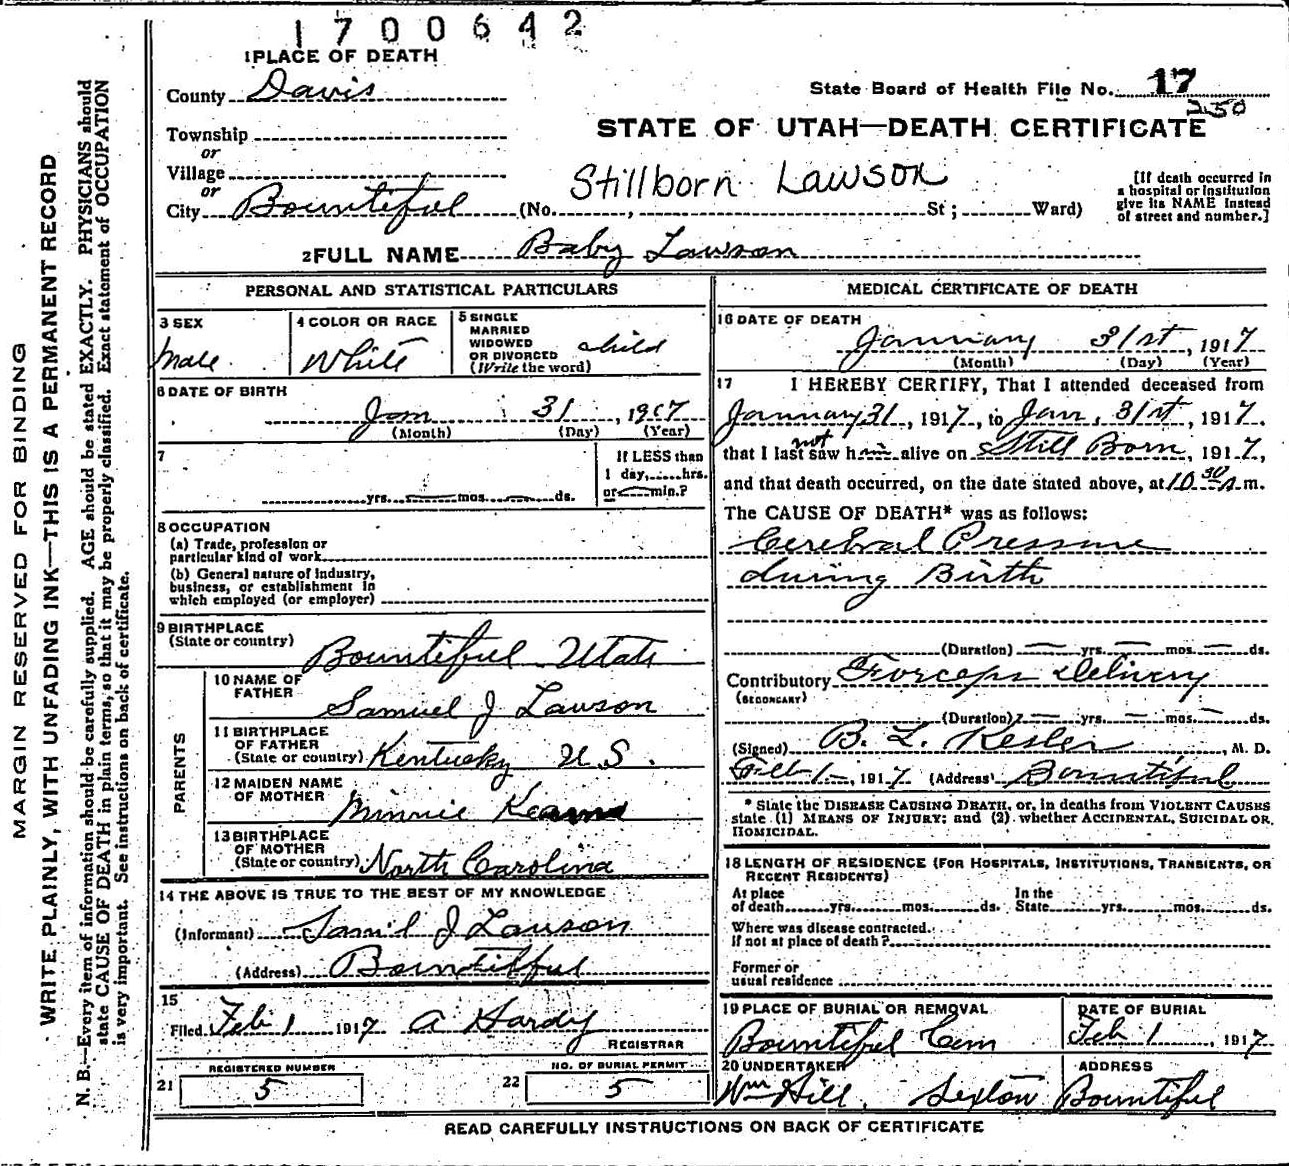 1700642
1 PLACE OF DEATH
County Davis
Township
or
Village
or
City Bountiful (No. , St ; Ward)
State Board of Health File No. 17
250
STATE OF UTAH—DEATH CERTIFICATE
Stillborn Lawson
[If death occurred in
a hospital or institution
give its NAME instead
of street and number.]
2 FULL NAME Baby Lawson
PERSONAL AND STATISTICAL PARTICULARS
3 SEX
Male
4 COLOR OR RACE
White
5 SINGLE
MARRIED
WIDOWED
OR DIVORCED
(Write the word)
child
6 DATE OF BIRTH
Jan 31, 1917
(Month) (Day) (Year)
7
yrs. mos. ds.
If LESS than
1 day, hrs.
or min.?
8 OCCUPATION
(a) Trade, profession or
particular kind of work
(b) General nature of industry,
business, or establishment in
which employed (or employer)
9 BIRTHPLACE
(State or country)
Bountiful Utah
PARENTS
10 NAME OF
FATHER
Samuel J Lawson
11 BIRTHPLACE
OF FATHER
(State or country) Kentucky U.S.
12 MAIDEN NAME
OF MOTHER
Minnie
13 BIRTHPLACE
OF MOTHER
(State or country) North Carolina
14 THE ABOVE IS TRUE TO THE BEST OF MY KNOWLEDGE
(Informant) J Lawson
(Address) Bountiful
15
Filed Feb 1 1917 A Hardy
REGISTRAR
REGISTERED NUMBER
21 5
NO. OF BURIAL PERMIT
22 5
MEDICAL CERTIFICATE OF DEATH
16 DATE OF DEATH
January 31st, 1917
(Month) (Day) (Year)
17 I HEREBY CERTIFY, That I attended deceased from
January 31, 1917, to Jan. 31st, 1917.
not
that I last saw him alive on Still Born, 1917,
and that death occurred, on the date stated above, at 10 30 A.m.
The CAUSE OF DEATH* was as follows:
Cerebral Pressure
during Birth
(Duration) yrs. mos. ds.
Contributory Forceps Delivery
(SECONDARY)
(Duration) yrs. mos. ds.
(Signed) B. L. Kesler, M. D.
Feb 1, 1917 (Address) Bountiful
* State the DISEASE CAUSING DEATH, or, in deaths from VIOLENT CAUSES
state (1) MEANS OF INJURY; and (2) whether ACCIDENTAL, SUICIDAL OR
HOMICIDAL.
18 LENGTH OF RESIDENCE (FOR HOSPITALS, INSTITUTIONS, TRANSIENTS, OR
RECENT RESIDENTS)
At place
of death yrs. mos. ds.
In the
State yrs. mos. ds.
Where was disease contracted.
If not at place of death?
Former or
usual residence
19 PLACE OF BURIAL OR REMOVAL
Bountiful Cem
DATE OF BURIAL
Feb 1, 1917
20 UNDERTAKER
Wm Hill, Sexton
ADDRESS
Bountiful
READ CAREFULLY INSTRUCTIONS ON BACK OF CERTIFICATE
MARGIN RESERVED FOR BINDING
WRITE PLAINLY, WITH UNFADING INK—THIS IS A PERMANENT RECORD
N. B.—Every item of information should be carefully supplied. AGE should be stated EXACTLY. PHYSICIANS should
state CAUSE OF DEATH in plain terms, so that it may be properly classified. Exact statement of OCCUPATION
is very important. See instructions on back of certificate.